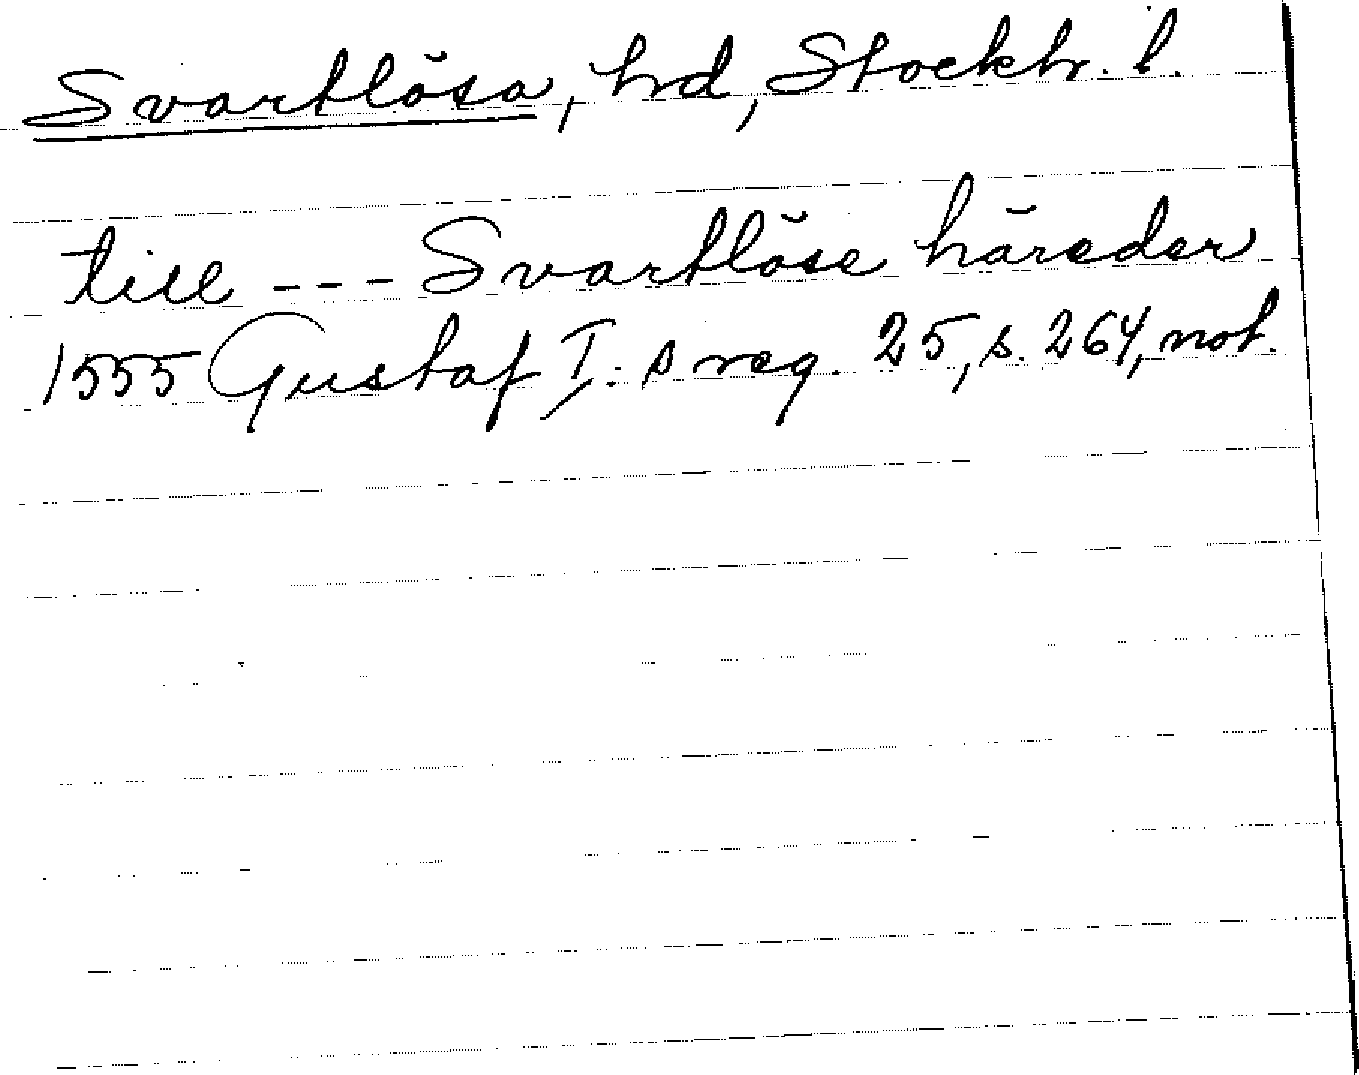 Svartlösa, hd, Stockh. l.
till --- Svartlöse häreder
1555 Gustaf I:s reg. 25, s. 264, not.